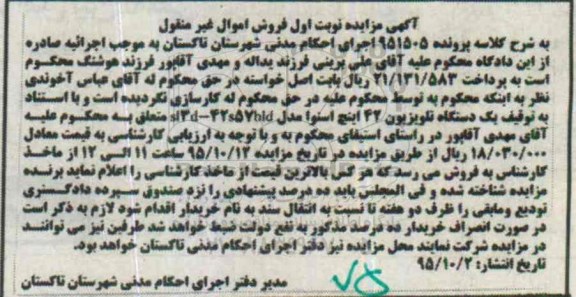 آگهی مزایده نوبت اول فروش اموال غیر منقول
به شرح کلاسه پرونده ۹۵۱۵۰۵ اجرای احکام مدنی شهرستان تاکستان به موجب اجرائیه صادره
از این دادگاه محکوم علیه آقای علی پرینی فرزند یداله و مهدی آقاپور فرزند هوشنگ محکوم
است به پرداخت ۲۱/۱۳۱/۵۸۳ ریال بابت اصل خواسته در حق محکوم له آقای عباس آخوندی
نظر به اینکه محکوم به توسط محکوم علیه در حق محکوم له کارسازی نگردیده است و با استناد
به توقیف یک دستگاه تلویزیون ۴۲ اینچ اسنوا مدل متعلق به محکوم علیه
آقای مهدی آقاپور در راستای استیفای محکوم به و با توجه به ارزیابی کارشناسی به قیمت معادل
۱۸/۰۳۰/۰۰۰ ریال از طریق مزایده در تاریخ مزایده ۹۵/۱۰/۱۲ ساعت ۱۱ الی ۱۲ از ماخذ
کارشناس به فروش می رسد که هر کس بالاترین قیمت از ماخذ کارشناسی را اعلام نماید برنده
مزایده شناخته شده و فی المجلس باید ده درصد پیشنهادی را نزد صندوق سپرده دادگستری
تودیع ومابقی را ظرف دو هفته تا نسبت به انتقال سند به نام خریدار اقدام شود لازم به ذکر است
در صورت انصراف خریدار ده درصد مذکور به نفع دولت ضبط خواهد شد طرفین نیز می توانند
در مزایده شرکت نمایند محل مزایده نیز دفتر اجرای احکام مدنی تاکستان خواهد بود.
تاریخ انتشار: ۹۵/۱۰/۲
مدیر دفتر اجرای احکام مدنی شهرستان تاکستان